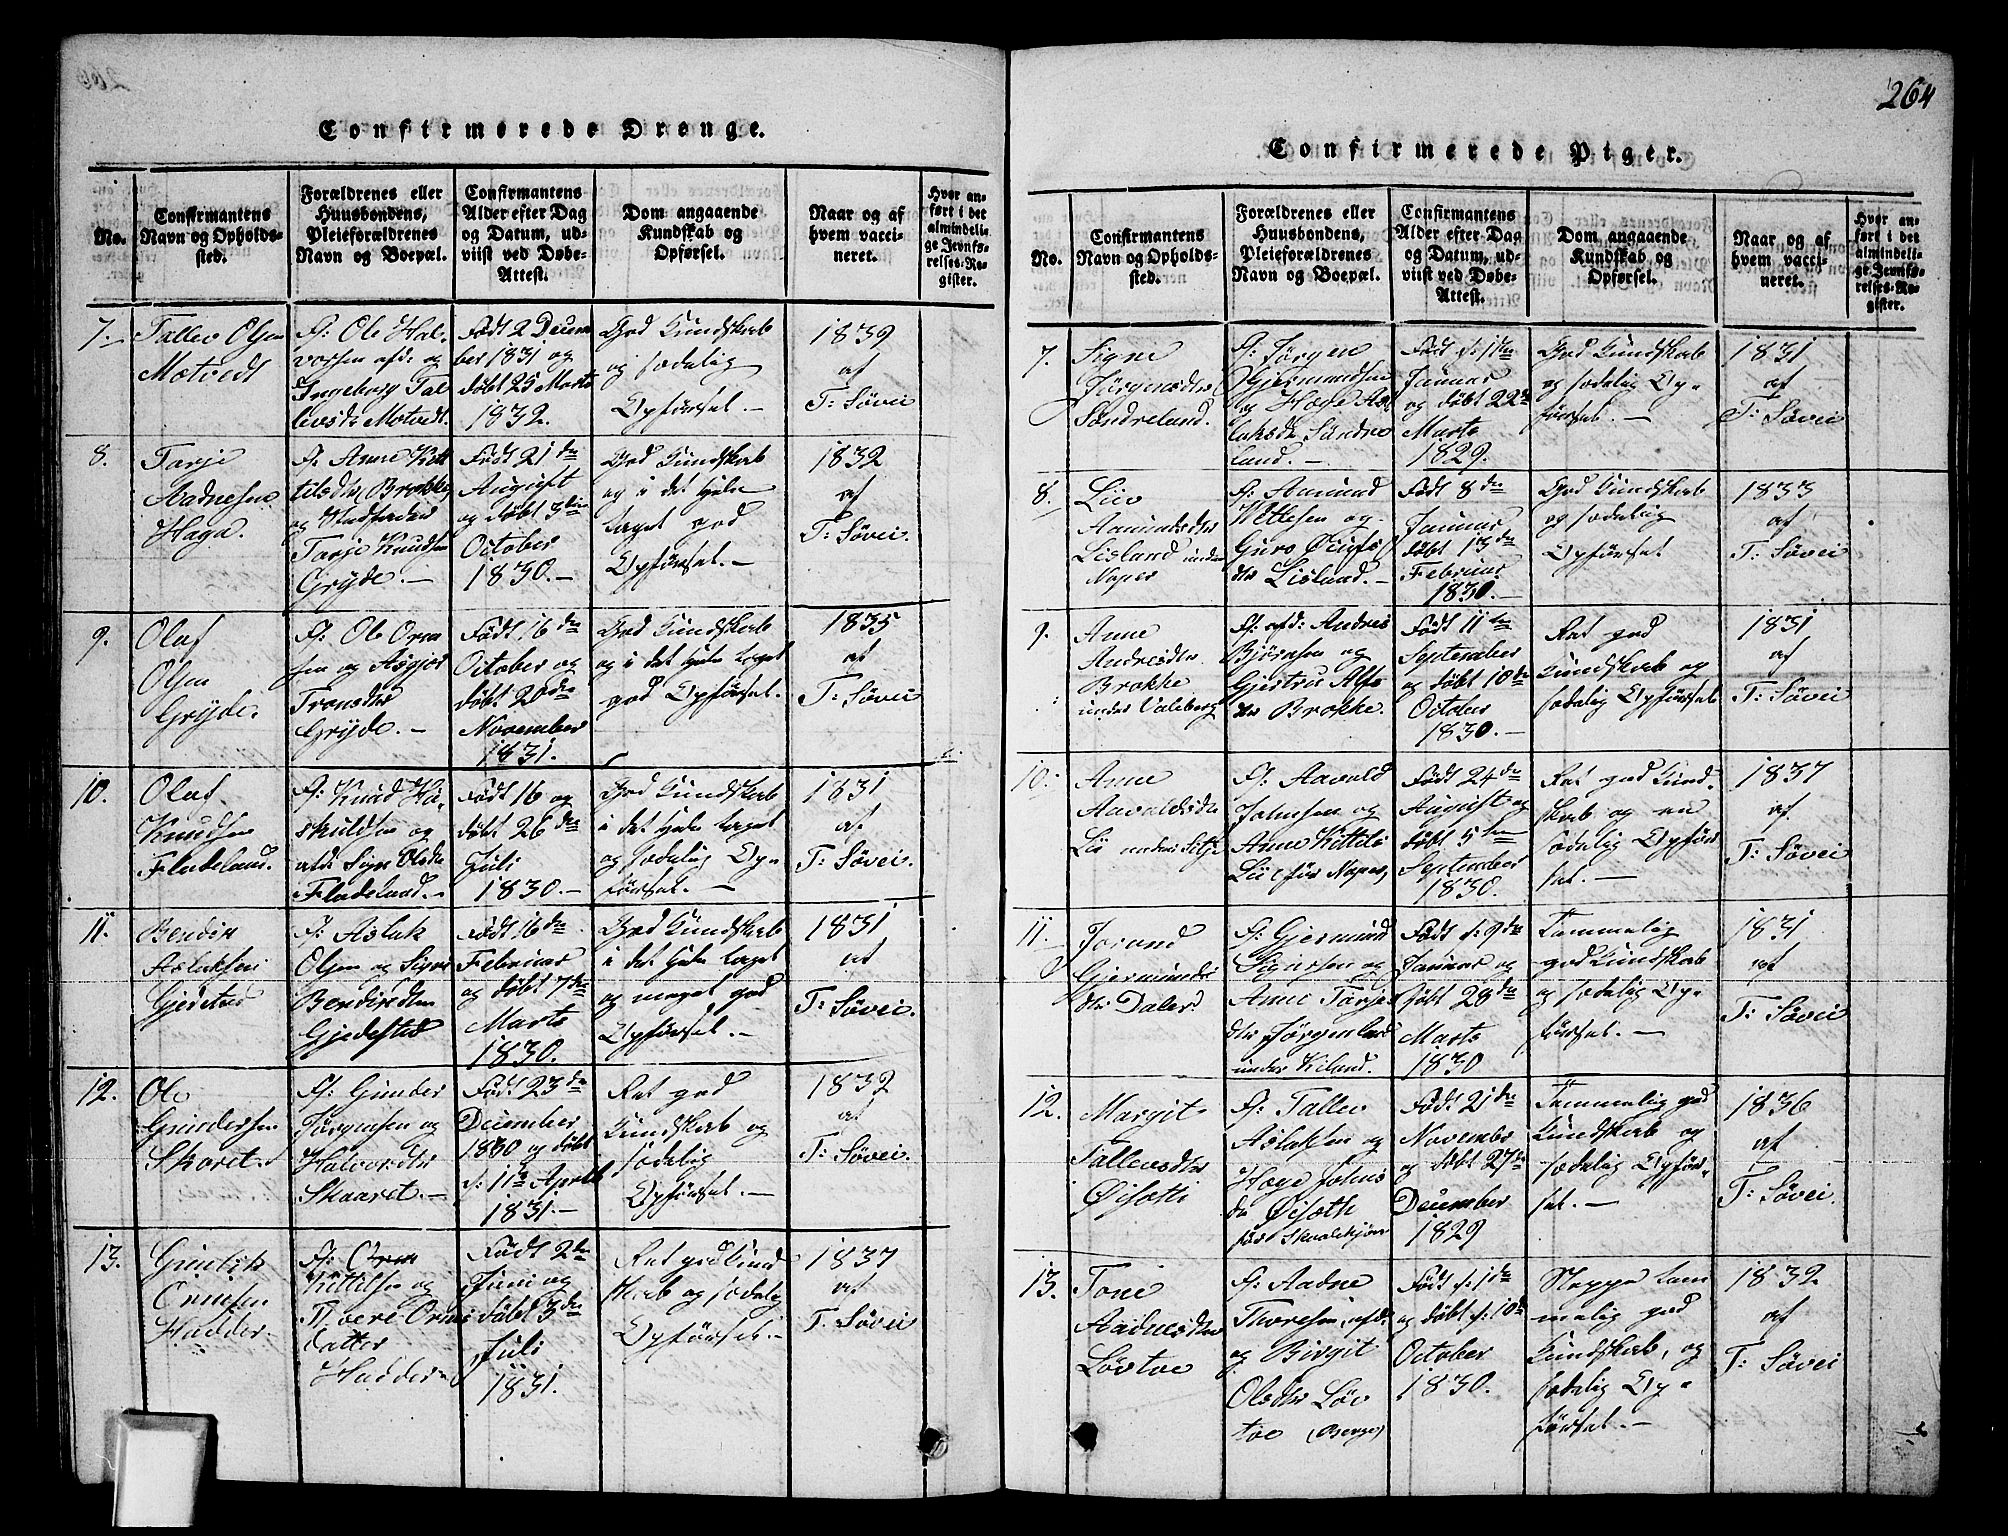 264
Confirmerede Drenge.
No.
Confirmantens
Navn og Opholds-
sted.
Forældrenes eller
Huusbondens,
Pleieforældrenes
Navn og Boepæl.
Confirmantens
Alder efter Dag
og Datum, ud-
viist ved Døbe-
Attest.
Dom angaaende
Kundskab og
Opførsel.
Naar og af
hvem vacci-
neret.
Hvor an-
ført i det
almindeli-
ge Jevnfø-
relses-Re-
gister.
7.
Tallev Olsen
Motvedt
F: Ole Hal-
vorsen afd: og
Ingeborg Tal-
levsdr Motvedt.
Født 2 Decem
ber 1831 og
døbt 25 Marts
1832.
God Kundskab
og sædelig
Opførsel. —
1839
af
T: Søvei
8.
Tarje
Aadnesen
Haga.
F: Anne Kitt
tilsdtr Brokke
og
Tarje Knudsen
Gryde. —
Født 21de
August
og døbt 3die
October
1830. —
God Kundskab
og i det hele
taget god
Opførsel. —
1832
af
T: Søvei.
9.
Olaf
Olsen
Gryde.
F: Ole Orm
sen og Asgjer
Tronsdtr
Gryde. —
Født 16de
October og
døbt 20de
November
1831.
God Kundskab
og i det hele taget
god Opførsel. —
1835
af
T: Søvei
10.
Olaf
Knudsen
Fladeland.
F: Knud Hø-
skuldsen og
afd: Signe Olsdtr
Fladeland. —
Født 16 og
døbt 26de
Juli
1830. —
God Kundskab
i det hele taget
og sædelig Op-
førsel. —
1831
af
T: Søvei.
11.
Bendix
Aslaksen
F: Aslak
Olsen og Signe
Bendixdtr
Gjedested
Født 16de
Februar
og døbt 7de
Marts
1830.
God Kundskab
i det hele taget
og meget god
Opførsel. —
1831
af
T: Søvei.
12.
Ole
Gundersen
Skaret.
F: Gunder
Jørgensen og
Halvordtr
Skaaret. —
Født 23de
December
1830 og døbt
d: 11te April
1831. —
Ret god
Kundskab og
sædelig
Opførsel. —
1832
af
T: Søvei.
13.
Gunlik
Ormsen
Hadder.
F: Orm
Kittilsen og
Thore Orms
datter
Hadder
Født 2den
Juni og
døbt 3de
Juli
1831.
Ret god Kund
skab og sædelig
Opførsel. —
1837
af
T. Søvei
Confirmerede Piger.
No.
Confirmantens
Navn og Opholds-
sted.
Forældrenes eller
Huusbondens,
Pleieforældrenes
Navn og Boepæl.
Confirmantens
Alder efter Dag
og Datum, ud-
viist ved Døbe-
Attest.
Dom angaaende
Kundskab og
Opførsel.
Naar og af
hvem vacci-
neret.
Hvor an-
ført i det
almindeli-
ge Jevnfø-
relses-Re-
gister.
7.
Signe
Jørgensdtr
Søndreland.
F: Jørgen
Gjermundsen
og Hæge As
laksdtr Søndre
land. —
Født d: 1ste
Januar
og døbt 22de
Marts
1829.
God Kundskab
og sædelig Op-
førsel. —
1831
af
T: Søvei
8.
Liv
Aamundsdtr
Lisland under
Noper
F: Aamund
Vettesen og
Guro
dtr Lisland. —
Født 8de
Januar
døbt 13de
Februar
1830. —
God Kundskab
og sædelig
Opførsel
1833
af
T: Søvei
9.
Anne
Andresdtr
Brokke
under Valeberg
F: afd: Andres
Bjørnsen og
Gjertru Alfs
dtr Brokke.
Født 11te
September
og døbt 10de
October
1830. —
Ret god
Kundskab og
sædelig Opførsel
1831
af
T: Søvei
10.
Anne
Aavaldsdtr
Lie under
F: Aavald
Johnsen og
Anne Kittils
Lie (før Noper)
Født 24de
August og
døbt 5te
September
1830.
Ret god Kund-
skab og en
sædelig Opfør
sel. —
1837
af
T: Søvei
11.
Jorand
Gjermunds
dtr Daler
F: Gjermund
Sigursen og
Anne Tarje
dtr Jørgenland
under Kiland.
Født d: 9de
Januar og
døbt 28de
Marts
1830
Temmelig
god Kundskab
og sædelig Op-
førsel. —
1831
af
T: Søvei
12.
Margit
Tallevsdtr
F: Tallev
Aslaksen og
Hæge Johns
dr Øisæth
før
Født 21de
Novembr
og døbt 27de
December
1829
Temmelig god
Kundskab og
sædelig Opfør-
sel. —
1836
af
T: Søvei
13.
Tone
Aadnesdtr
Løvtoe
F: Aadne
Thoresen, afd:
og Birgit
Olsdtr Løv
toe
Født d: 1de
og døbt d: 10de
October
1830.
Neppe tem
melig god
Kundskab, og
sædelig Op-
førsel. —
1832
af
T: Søvei